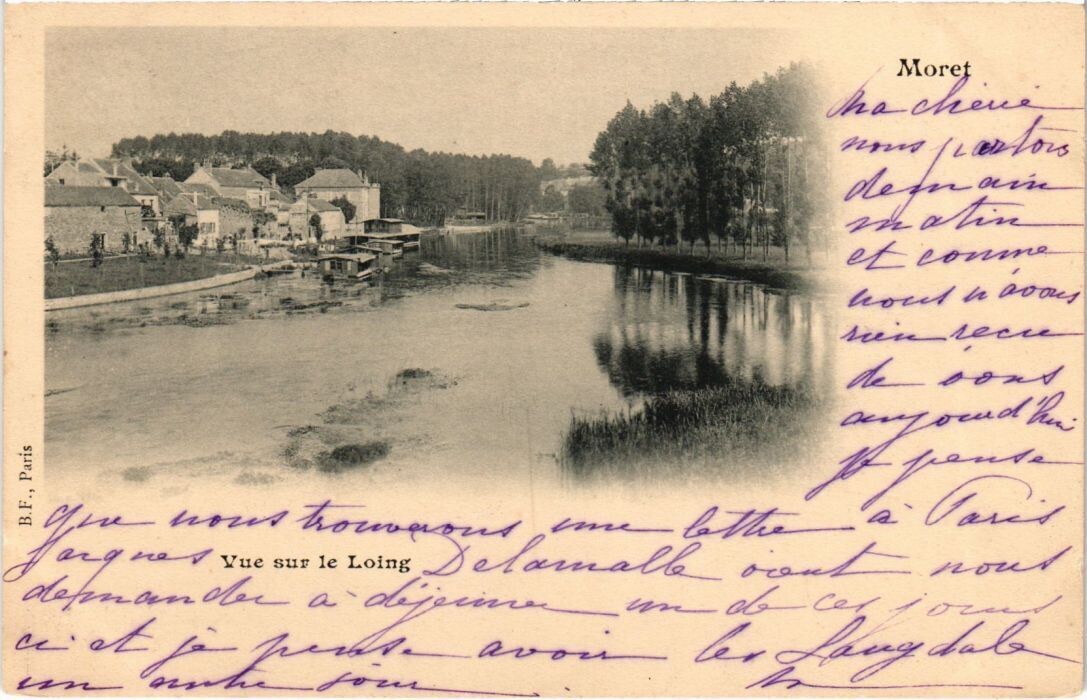 Moret
Ma chérie
nous partons
demain
matin
et comme
nous n'avons
rien recu
de vous
aujourd'hui
je pense
que nous trouverons une lettre à Paris
Jacques Delamalle vient nous
Vue sur le Loing
demander à déjeuner un de ces jours
ci et je pense avoir les Langdale
un autre jour
B.F., Paris